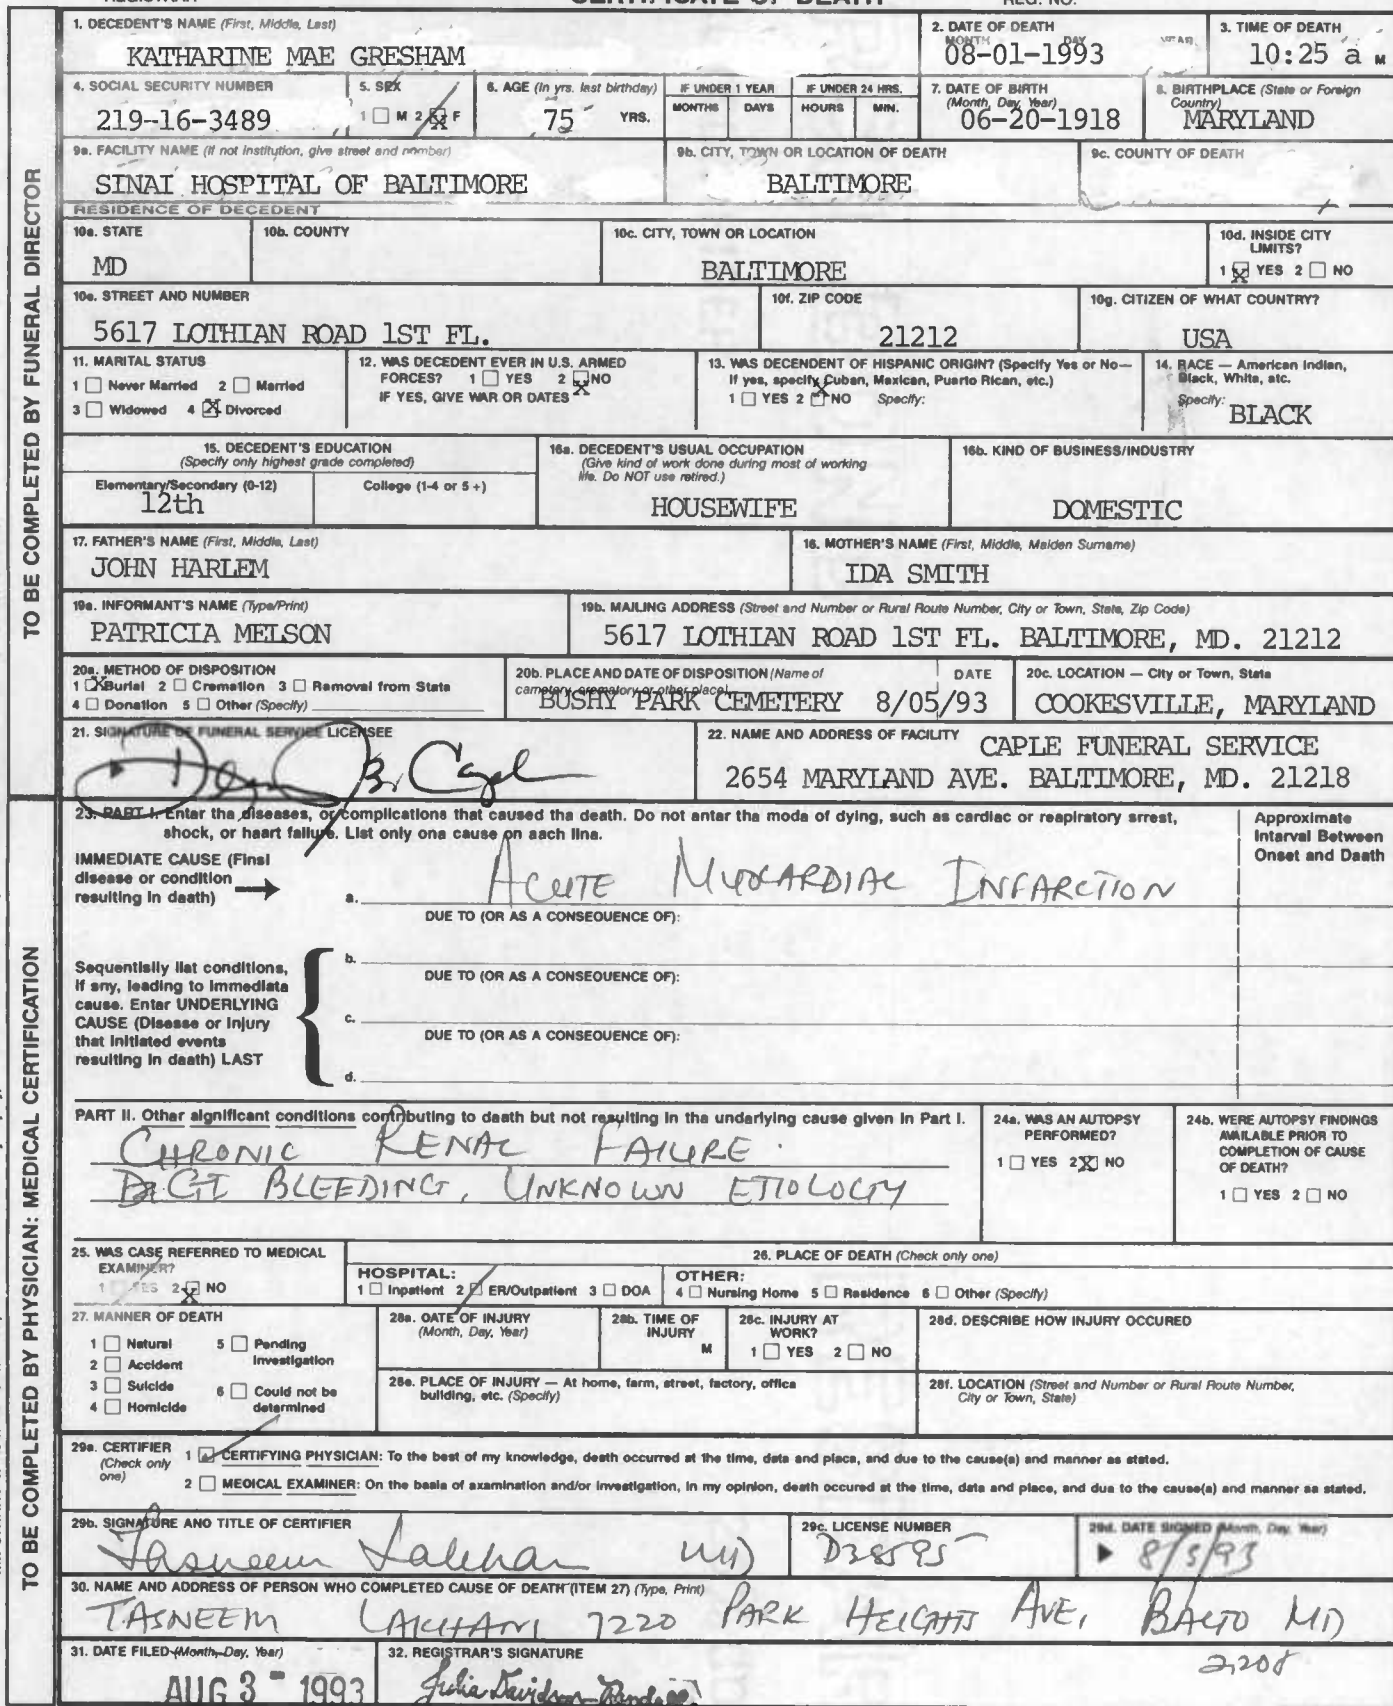 CERTIFICATE OF DEATH
REGISTRAR
REG. NO.
TO BE COMPLETED BY FUNERAL DIRECTOR
1. DECEDENT'S NAME (First, Middle, Last)
KATHARINE MAE GRESHAM
2. DATE OF DEATH
MONTH DAY YEAR
08-01-1993
3. TIME OF DEATH
10:25 a M
4. SOCIAL SECURITY NUMBER
219-16-3489
5. SEX
1 ☐ M 2 ☒ F
6. AGE (In yrs. last birthday)
75 YRS.
IF UNDER 1 YEAR
MONTHS DAYS
IF UNDER 24 HRS.
HOURS MIN.
7. DATE OF BIRTH
(Month, Day, Year)
06-20-1918
8. BIRTHPLACE (State or Foreign
Country)
MARYLAND
9a. FACILITY NAME (If not institution, give street and number)
SINAI HOSPITAL OF BALTIMORE
9b. CITY, TOWN OR LOCATION OF DEATH
BALTIMORE
9c. COUNTY OF DEATH
RESIDENCE OF DECEDENT
10a. STATE
MD
10b. COUNTY
10c. CITY, TOWN OR LOCATION
BALTIMORE
10d. INSIDE CITY
LIMITS?
1 ☒ YES 2 ☐ NO
10e. STREET AND NUMBER
5617 LOTHIAN ROAD 1ST FL.
10f. ZIP CODE
21212
10g. CITIZEN OF WHAT COUNTRY?
USA
11. MARITAL STATUS
1 ☐ Never Married 2 ☐ Married
3 ☐ Widowed 4 ☒ Divorced
12. WAS DECEDENT EVER IN U.S. ARMED
FORCES? 1 ☐ YES 2 ☒ NO
IF YES, GIVE WAR OR DATES
13. WAS DECENDENT OF HISPANIC ORIGIN? (Specify Yes or No—
If yes, specify Cuban, Mexican, Puerto Rican, etc.)
1 ☐ YES 2 ☒ NO Specify:
14. RACE — American Indian,
Black, White, etc.
Specify:
BLACK
15. DECEDENT'S EDUCATION
(Specify only highest grade completed)
Elementary/Secondary (0-12)
12th
College (1-4 or 5+)
16a. DECEDENT'S USUAL OCCUPATION
(Give kind of work done during most of working
life. Do NOT use retired.)
HOUSEWIFE
16b. KIND OF BUSINESS/INDUSTRY
DOMESTIC
17. FATHER'S NAME (First, Middle, Last)
JOHN HARLEM
18. MOTHER'S NAME (First, Middle, Maiden Surname)
IDA SMITH
19a. INFORMANT'S NAME (Type/Print)
PATRICIA MELSON
19b. MAILING ADDRESS (Street and Number or Rural Route Number, City or Town, State, Zip Code)
5617 LOTHIAN ROAD 1ST FL. BALTIMORE, MD. 21212
20a. METHOD OF DISPOSITION
1 ☒ Burial 2 ☐ Cremation 3 ☐ Removal from State
4 ☐ Donation 5 ☐ Other (Specify)
20b. PLACE AND DATE OF DISPOSITION (Name of
cemetery, crematory or other place) DATE
BUSHY PARK CEMETERY 8/05/93
20c. LOCATION — City or Town, State
COOKESVILLE, MARYLAND
21. SIGNATURE OF FUNERAL SERVICE LICENSEE
22. NAME AND ADDRESS OF FACILITY
CAPLE FUNERAL SERVICE
2654 MARYLAND AVE. BALTIMORE, MD. 21218
TO BE COMPLETED BY PHYSICIAN: MEDICAL CERTIFICATION
23. PART I. Enter the diseases, or complications that caused the death. Do not enter the mode of dying, such as cardiac or respiratory arrest,
shock, or heart failure. List only one cause on each line.
Approximate
Interval Between
Onset and Death
IMMEDIATE CAUSE (Final
disease or condition
resulting in death) →
a. ACUTE MYOCARDIAL INFARCTION
DUE TO (OR AS A CONSEQUENCE OF):
Sequentially list conditions,
if any, leading to immediate
cause. Enter UNDERLYING
CAUSE (Disease or Injury
that initiated events
resulting in death) LAST
b.
DUE TO (OR AS A CONSEQUENCE OF):
c.
DUE TO (OR AS A CONSEQUENCE OF):
d.
PART II. Other significant conditions contributing to death but not resulting in the underlying cause given in Part I.
CHRONIC RENAL FAILURE.
GI BLEEDING, UNKNOWN ETIOLOGY
24a. WAS AN AUTOPSY
PERFORMED?
1 ☐ YES 2 ☒ NO
24b. WERE AUTOPSY FINDINGS
AVAILABLE PRIOR TO
COMPLETION OF CAUSE
OF DEATH?
1 ☐ YES 2 ☐ NO
25. WAS CASE REFERRED TO MEDICAL
EXAMINER?
1 ☐ YES 2 ☒ NO
26. PLACE OF DEATH (Check only one)
HOSPITAL:
1 ☐ Inpatient 2 ☑ ER/Outpatient 3 ☐ DOA
OTHER:
4 ☐ Nursing Home 5 ☐ Residence 6 ☐ Other (Specify)
27. MANNER OF DEATH
1 ☐ Natural 5 ☐ Pending
Investigation
2 ☐ Accident
3 ☐ Suicide 6 ☐ Could not be
4 ☐ Homicide determined
28a. DATE OF INJURY
(Month, Day, Year)
28b. TIME OF
INJURY
M
28c. INJURY AT
WORK?
1 ☐ YES 2 ☐ NO
28d. DESCRIBE HOW INJURY OCCURED
28e. PLACE OF INJURY — At home, farm, street, factory, office
building, etc. (Specify)
28f. LOCATION (Street and Number or Rural Route Number,
City or Town, State)
29a. CERTIFIER
(Check only
one)
1 ☑ CERTIFYING PHYSICIAN: To the best of my knowledge, death occurred at the time, date and place, and due to the cause(s) and manner as stated.
2 ☐ MEDICAL EXAMINER: On the basis of examination and/or investigation, in my opinion, death occured at the time, date and place, and due to the cause(s) and manner as stated.
29b. SIGNATURE AND TITLE OF CERTIFIER
Tasneem Lakhani MD
29c. LICENSE NUMBER
D38595
29d. DATE SIGNED (Month, Day, Year)
8/3/93
30. NAME AND ADDRESS OF PERSON WHO COMPLETED CAUSE OF DEATH (ITEM 27) (Type, Print)
TASNEEM LAKHANI 7220 PARK HEIGHTS AVE, BALTO MD
21208
31. DATE FILED (Month, Day, Year)
AUG 3 - 1993
32. REGISTRAR'S SIGNATURE
Julia Davidson-Randall